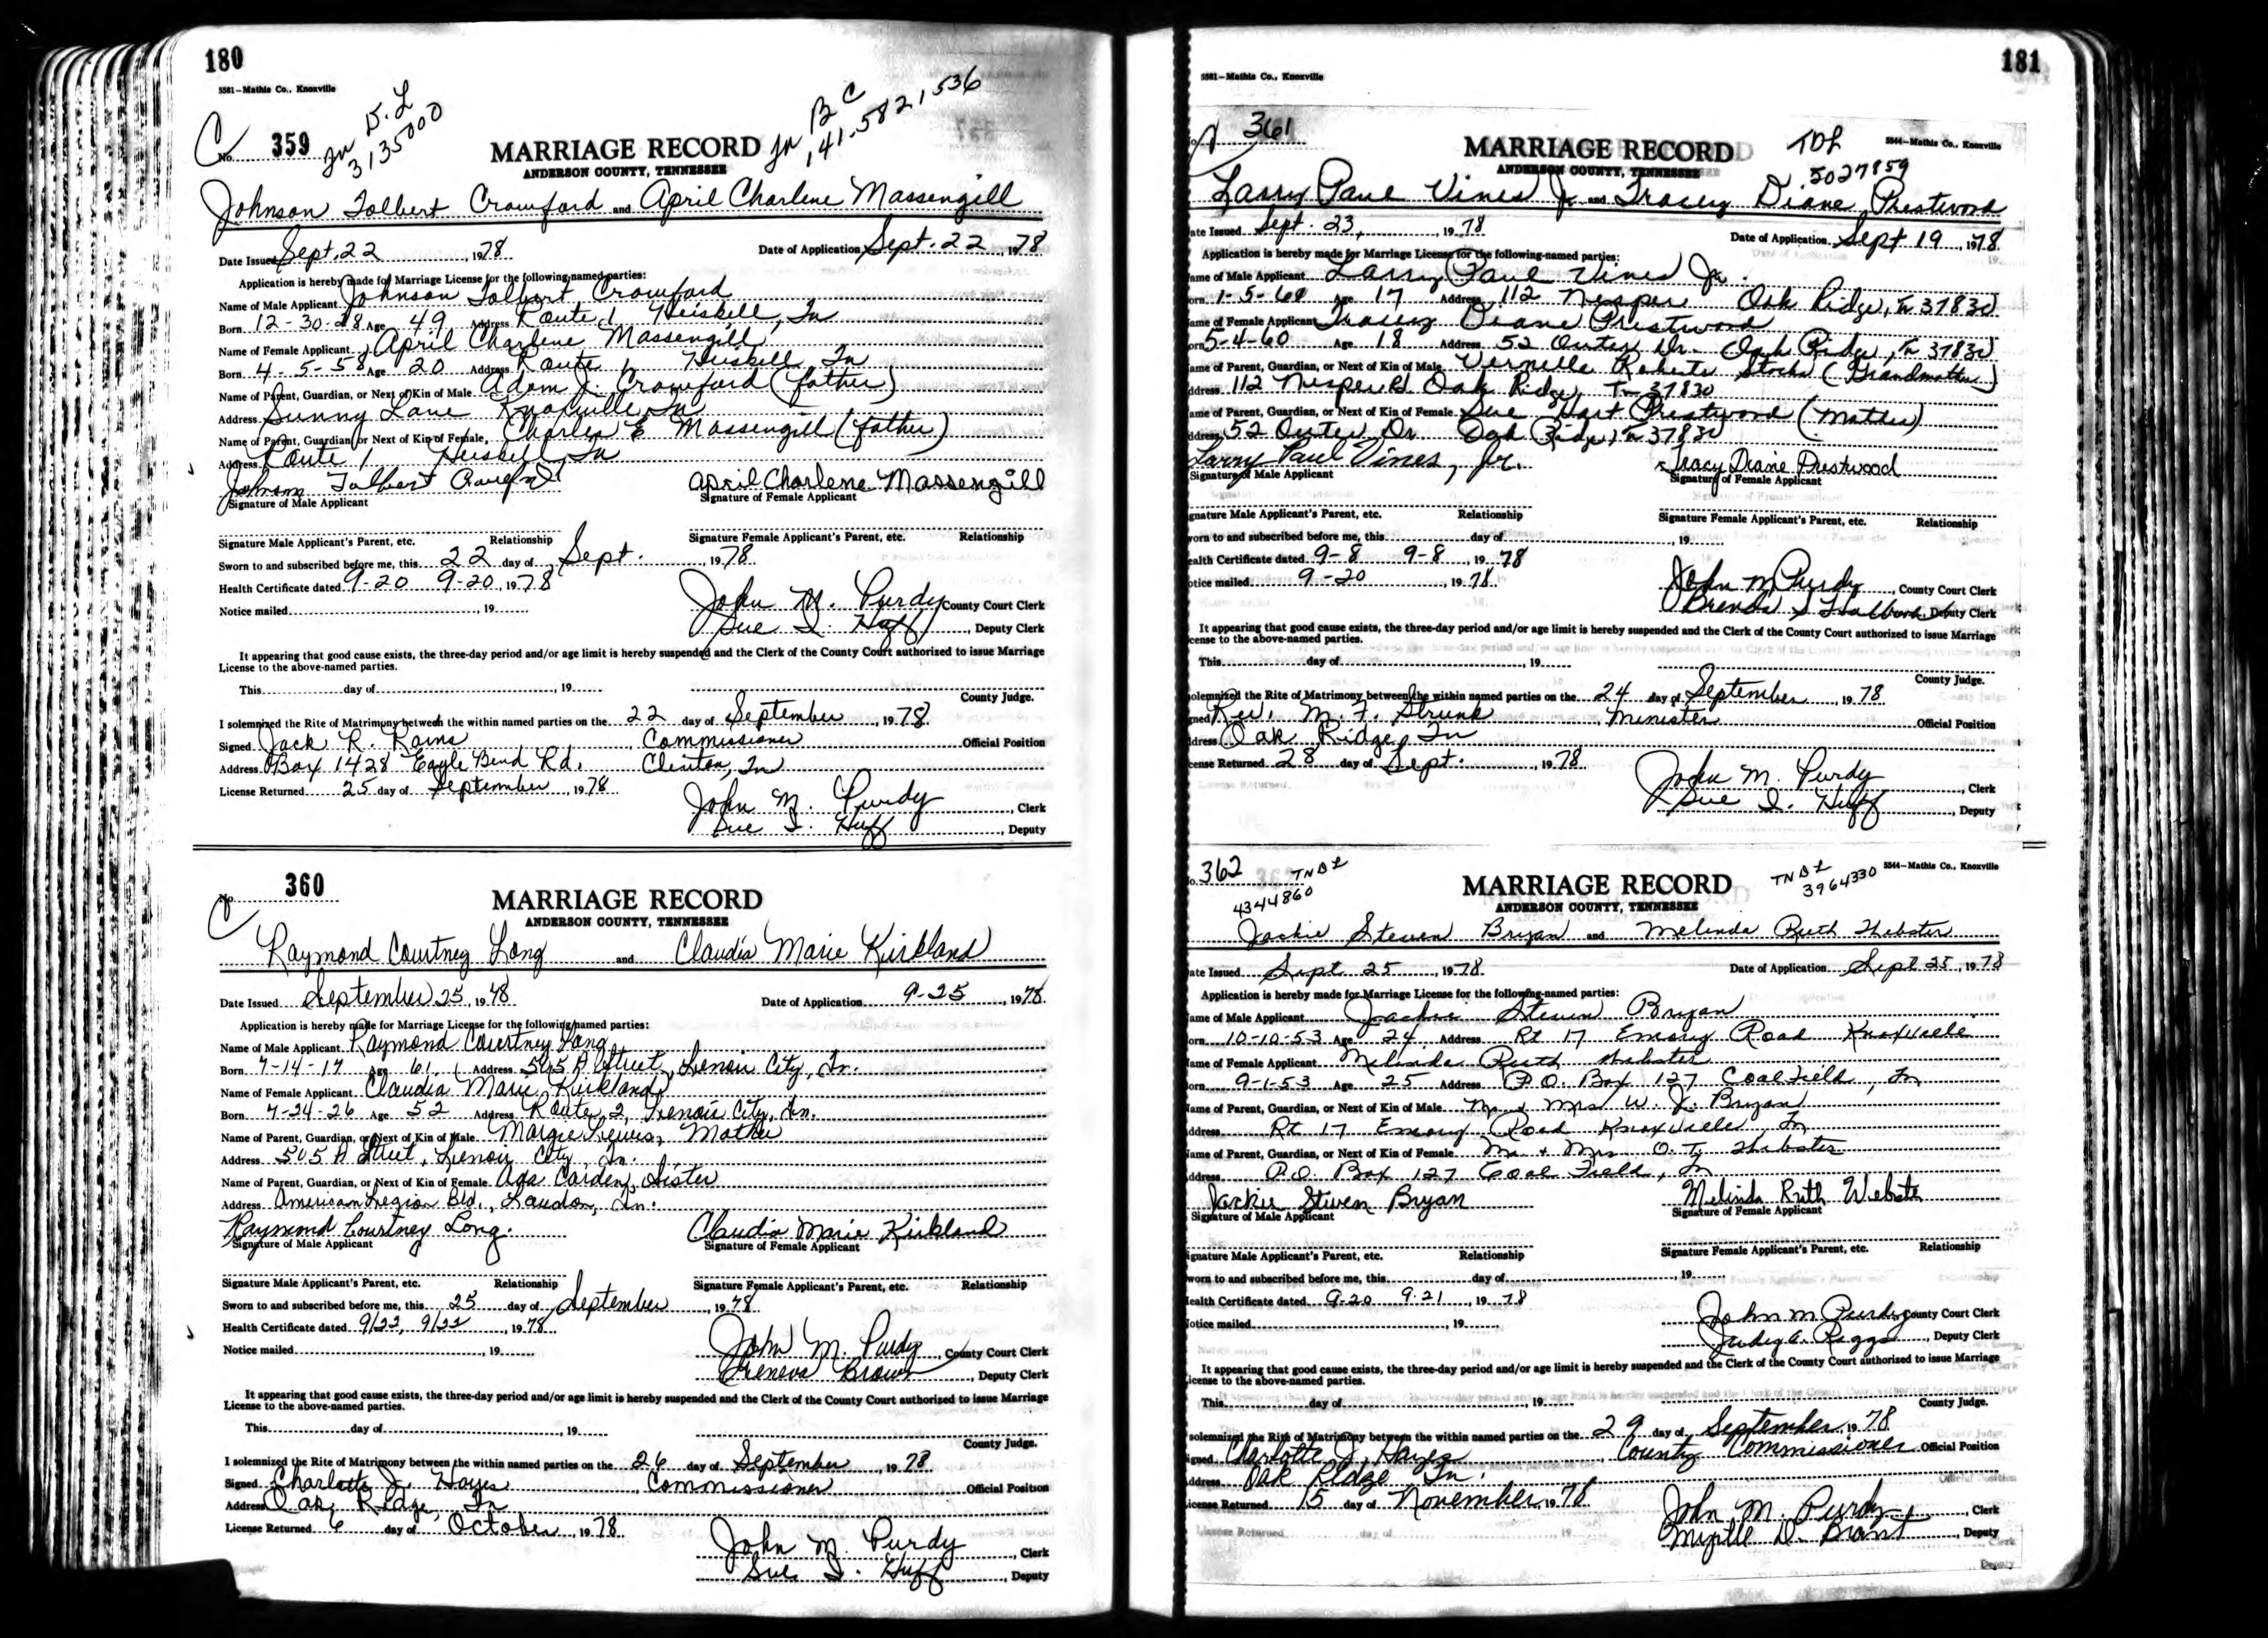 180
5581—Mathis Co., Knoxville
D.L
Tn 3135000
B C
Tn 141-5821536
C
No. 359
MARRIAGE RECORD
ANDERSON COUNTY, TENNESSEE
Johnson Tolbert Crawford and April Charlene Massengill
Date Issued Sept. 22, 1978 Date of Application Sept. 22, 1978
Application is hereby made for Marriage License for the following-named parties:
Name of Male Applicant Johnson Tolbert Crawford
Born 12-30-28 Age 49 Address Route 1 Heiskell, Tn
Name of Female Applicant April Charlene Massengill
Born 4-5-58 Age 20 Address Route 1 Heiskell, Tn
Name of Parent, Guardian, or Next of Kin of Male Adam J. Crawford (father)
Address Sunny Lane Knoxville, Tn
Name of Parent, Guardian or Next of Kin of Female, Charles E Massengill (father)
Address Route 1 Heiskell, Tn
Johnson Tolbert Crawford April Charlene Massengill
Signature of Male Applicant Signature of Female Applicant
Signature Male Applicant's Parent, etc. Relationship Signature Female Applicant's Parent, etc. Relationship
Sworn to and subscribed before me, this 22 day of Sept., 1978
Health Certificate dated 9-20 9-20, 1978
Notice mailed , 19
John M. Purdy County Court Clerk
Sue I. Huff, Deputy Clerk
It appearing that good cause exists, the three-day period and/or age limit is hereby suspended and the Clerk of the County Court authorized to issue Marriage
License to the above-named parties.
This day of , 19
County Judge.
I solemnized the Rite of Matrimony between the within named parties on the 22 day of September, 1978.
Signed Jack R. Rains, Commissioner Official Position
Address Box 1428 Eagle Bend Rd. Clinton, Tn
License Returned 25 day of September, 1978
John M. Purdy, Clerk
Sue I. Huff, Deputy
C
No. 360
MARRIAGE RECORD
ANDERSON COUNTY, TENNESSEE
Raymond Courtney Long and Claudia Marie Kirkland
Date Issued September 25, 1978 Date of Application 9-25, 1978
Application is hereby made for Marriage License for the following named parties:
Name of Male Applicant Raymond Courtney Long
Born 7-14-17 Age 61 Address 505 A Street, Lenoir City, Tn.
Name of Female Applicant Claudia Marie Kirkland
Born 7-24-26 Age 52 Address Route 2, Lenoir City, Tn.
Name of Parent, Guardian, or Next of Kin of Male Margie Lewis, Mother
Address 505 A Street, Lenoir City, Tn.
Name of Parent, Guardian, or Next of Kin of Female Ada Carden, Sister
Address American Legion Bld., Loudon, Tn.
Raymond Courtney Long. Claudia Marie Kirkland
Signature of Male Applicant Signature of Female Applicant
Signature Male Applicant's Parent, etc. Relationship Signature Female Applicant's Parent, etc. Relationship
Sworn to and subscribed before me, this 25 day of September, 1978
Health Certificate dated 9/22, 9/22, 1978
Notice mailed , 19
John M. Purdy, County Court Clerk
Geneva Brown, Deputy Clerk
It appearing that good cause exists, the three-day period and/or age limit is hereby suspended and the Clerk of the County Court authorized to issue Marriage
License to the above-named parties.
This day of , 19
County Judge.
I solemnized the Rite of Matrimony between the within named parties on the 26 day of September, 1978
Signed Charlotte J. Hayes, Commissioner Official Position
Address Oak Ridge, Tn
License Returned 6 day of October, 1978
John M. Purdy, Clerk
Sue I. Huff, Deputy
181
5581—Mathis Co., Knoxville
361
5544—Mathis Co., Knoxville
MARRIAGE RECORD
TDL 5027859
ANDERSON COUNTY, TENNESSEE
Larry Paul Vines Jr. and Tracey Diane Prestwood
ate Issued Sept. 23, 1978 Date of Application Sept 19, 1978
Application is hereby made for Marriage License for the following-named parties:
ame of Male Applicant Larry Paul Vines Jr.
orn 1-5-61 Age 17 Address 112 Nesper Oak Ridge, Tn 37830
ame of Female Applicant Tracey Diane Prestwood
orn 5-4-60 Age 18 Address 52 Outer Dr. Oak Ridge, Tn 37830
ame of Parent, Guardian, or Next of Kin of Male Vernelle Roberts Stocks (Grandmother)
ddress 112 Nesper Rd Oak Ridge, Tn 37830
ame of Parent, Guardian, or Next of Kin of Female Sue Hart Prestwood (Mother)
ddress 52 Outer Dr Oak Ridge, Tn 37830
Larry Paul Vines, Jr. x Tracy Diane Prestwood
Signature of Male Applicant Signature of Female Applicant
gnature Male Applicant's Parent, etc. Relationship Signature Female Applicant's Parent, etc. Relationship
worn to and subscribed before me, this day of , 19
ealth Certificate dated 9-8 9-8, 1978
otice mailed 9-20, 1978
John M Purdy, County Court Clerk
Brenda S Deputy Clerk
It appearing that good cause exists, the three-day period and/or age limit is hereby suspended and the Clerk of the County Court authorized to issue Marriage
cense to the above-named parties.
This day of , 19
County Judge.
solemnized the Rite of Matrimony between the within named parties on the 24 day of September, 1978
gned Rev. M. F. Strunk, Minister Official Position
ddress Oak Ridge, Tn
cense Returned 28 day of Sept., 1978
John M. Purdy, Clerk
Sue I. Huff, Deputy
o. 362
TNDL 4344860
TNDL 3964330
5544—Mathis Co., Knoxville
MARRIAGE RECORD
ANDERSON COUNTY, TENNESSEE
Jackie Steven Bryan and Melinda Ruth Webster
ate Issued Sept 25, 1978 Date of Application Sept 25, 1978
Application is hereby made for Marriage License for the following-named parties:
ame of Male Applicant Jackie Steven Bryan
orn 10-10-53 Age 24 Address Rt 17 Emory Road Knoxville
ame of Female Applicant Melinda Ruth Webster
orn 9-1-53 Age 25 Address P.O. Box 127 Coalfield, Tn
ame of Parent, Guardian, or Next of Kin of Male Mr & Mrs W. J. Bryan
ddress Rt 17 Emory Road Knoxville, Tn
ame of Parent, Guardian, or Next of Kin of Female Mr. & Mrs O. T. Webster
ddress P.O. Box 127 Coal Field, Tn
Jackie Steven Bryan Melinda Ruth Webster
Signature of Male Applicant Signature of Female Applicant
ignature Male Applicant's Parent, etc. Relationship Signature Female Applicant's Parent, etc. Relationship
worn to and subscribed before me, this day of , 19
ealth Certificate dated 9-20 9-21, 1978
otice mailed , 19
John M Purdy County Court Clerk
Judy A. Riggs, Deputy Clerk
It appearing that good cause exists, the three-day period and/or age limit is hereby suspended and the Clerk of the County Court authorized to issue Marriage
icense to the above-named parties.
This day of , 19
County Judge.
solemnized the Rite of Matrimony between the within named parties on the 29 day of September, 1978
igned Charlotte J. Hayes, County Commissioner Official Position
ddress Oak Ridge Tn.
icense Returned 15 day of November, 1978
John M. Purdy, Clerk
Myrtle D. Brant, Deputy